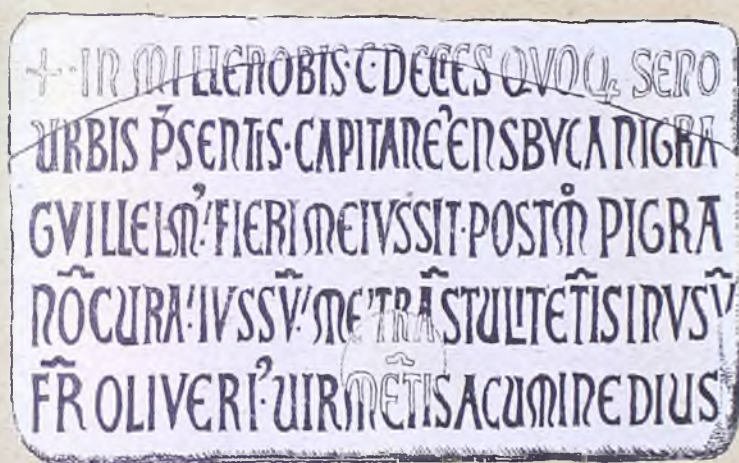 +·IN MILLENOBIS·C·DECIES QVOQꝫ SENO
URBIS P̄SENTIS·CAPITANE᾿ENSBVCANIGRA
GVILLELM᾿:FIERI MEIVSSIT·POSTM̊ PIGRA
NŌCURA:IVSSV̄:ME᾿TRĀSTULITETĪSINVSV̄
FR̄ OLIVERI᾿:UIRMĒTISACUMINEDIUS